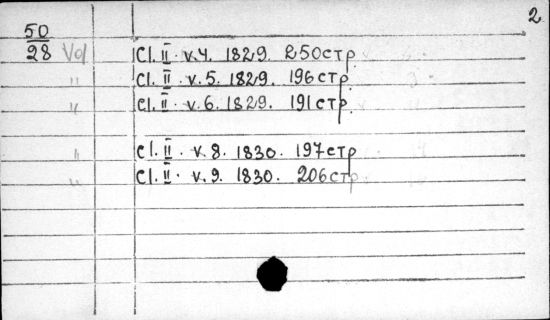 2.
50
28 Vol Cl. II · v. 4. 1829. 250стр.
" Cl. II · v. 5. 1829. 196стр.
" Cl. II · v. 6. 1829. 191стр.
" Cl. II · v. 8. 1830. 197стр
" Cl. II · v. 9. 1830. 206стр.